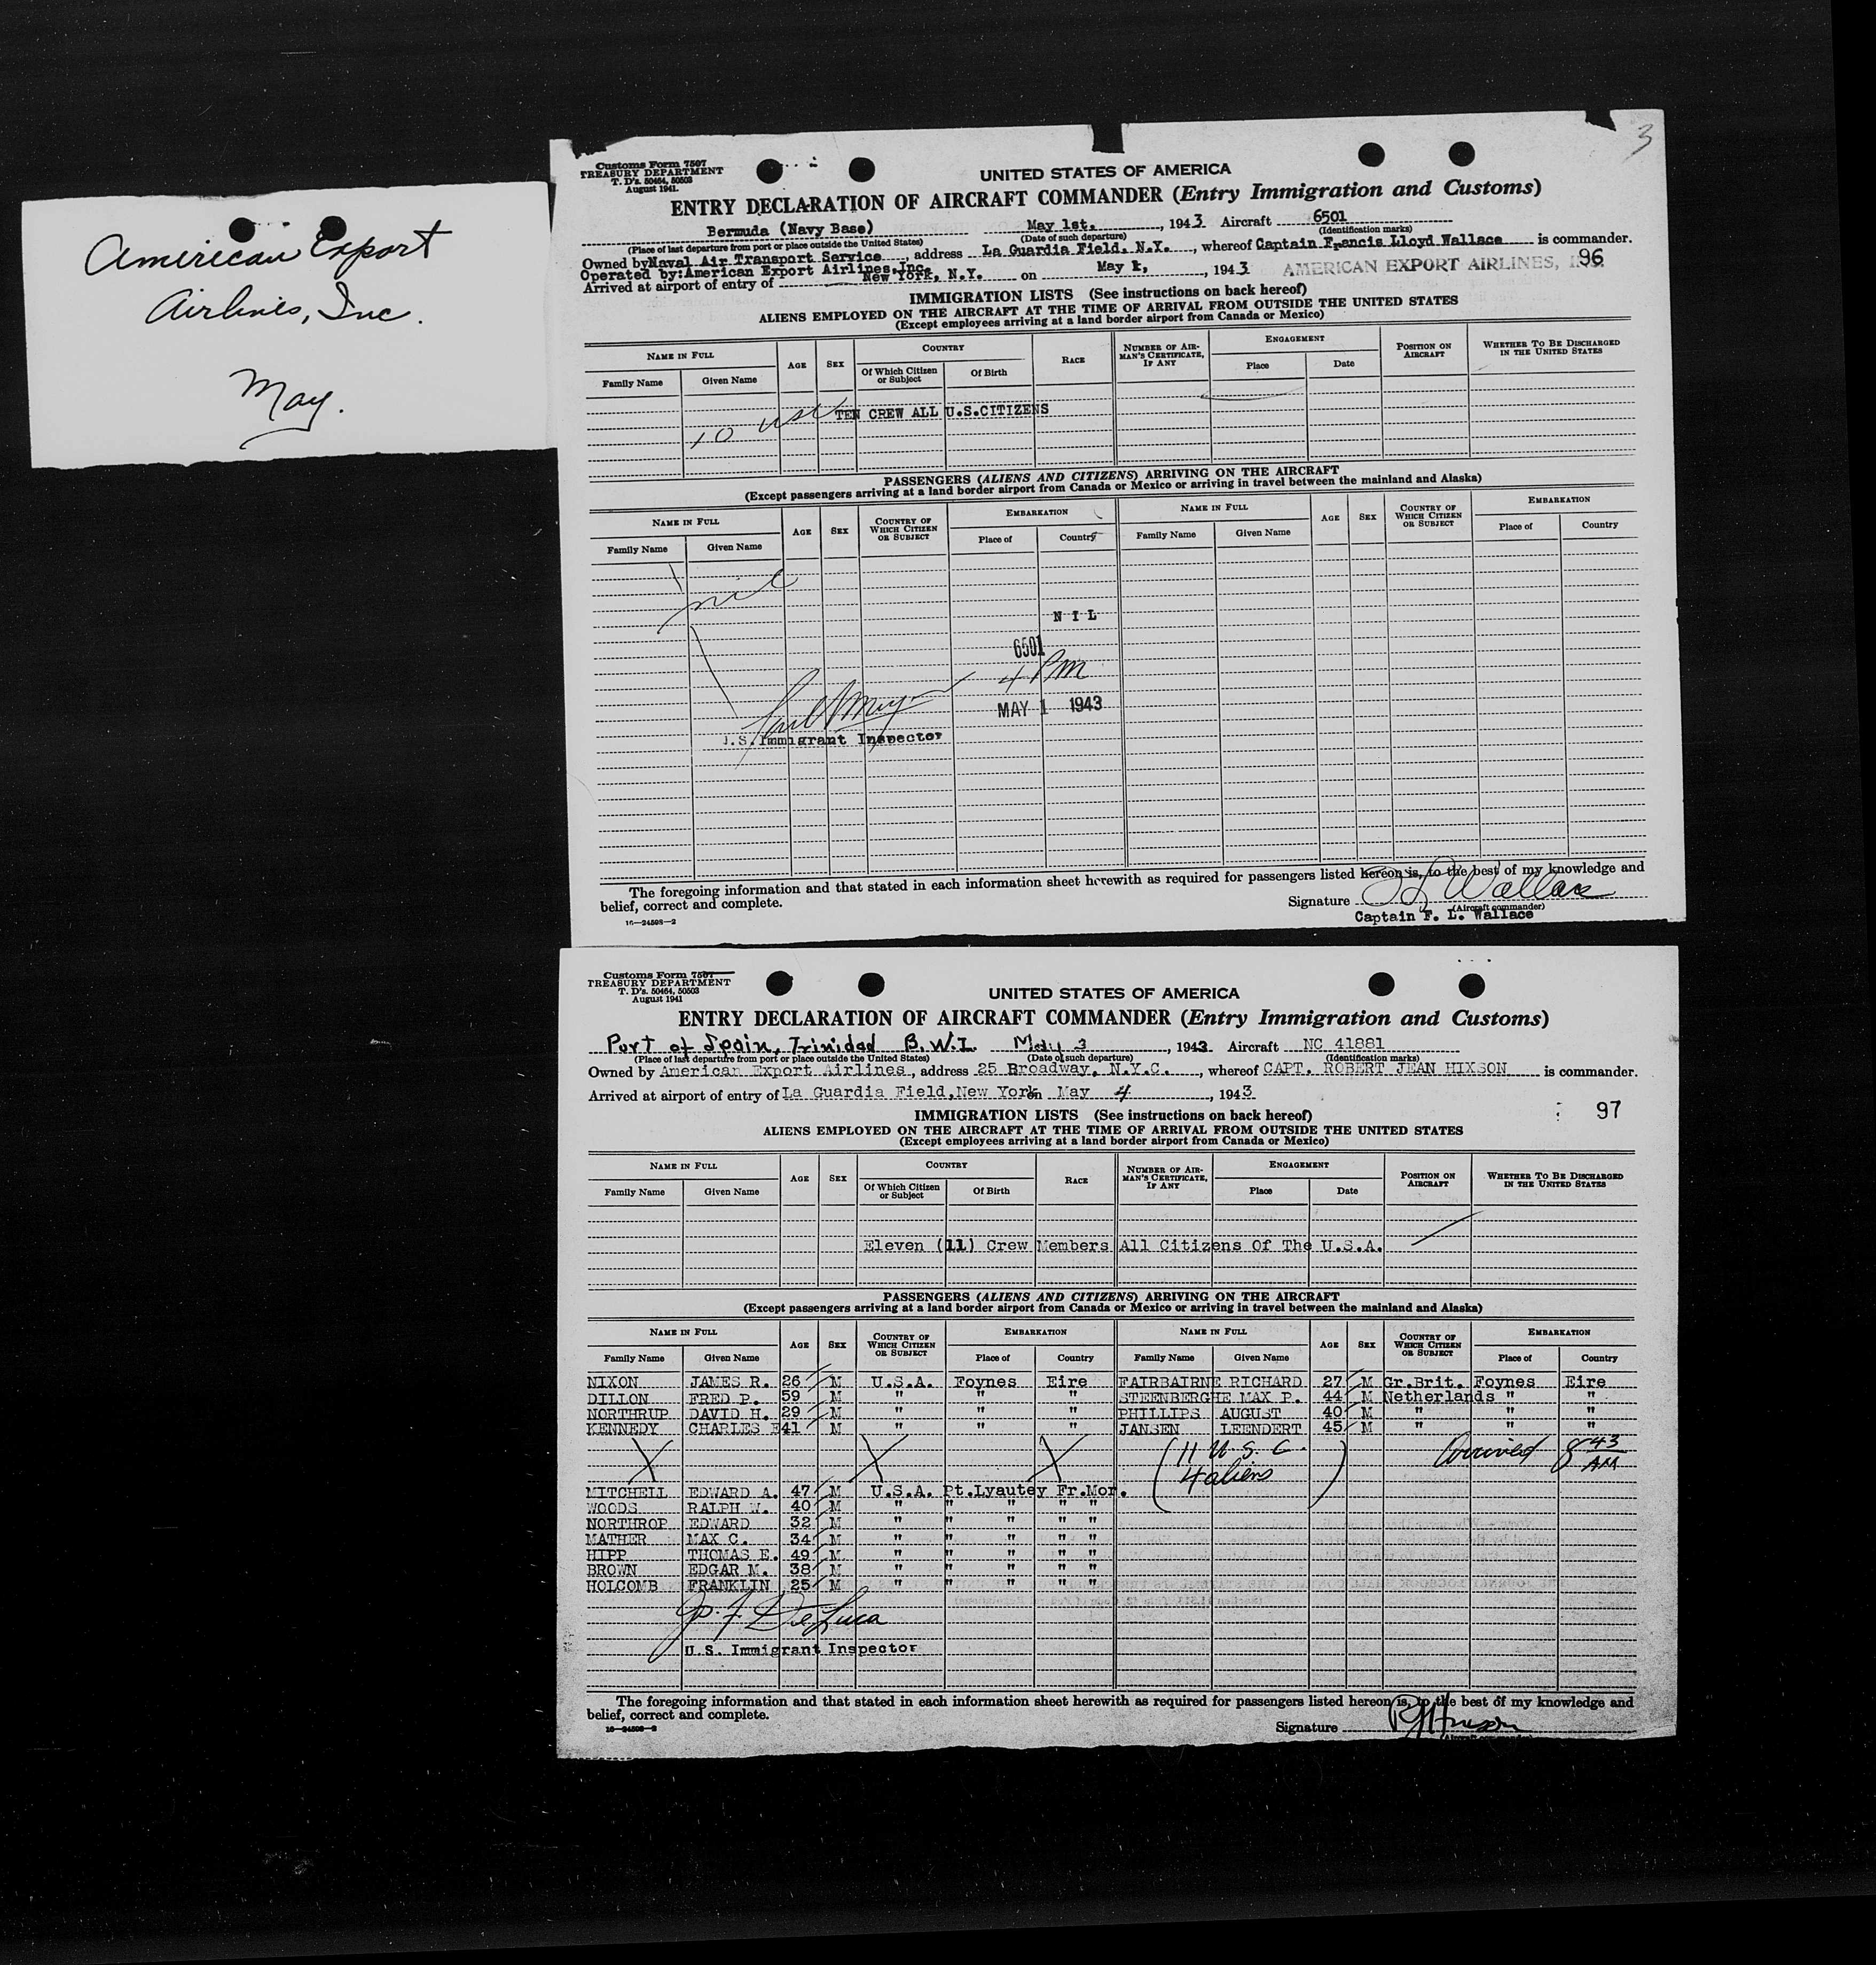 American Export
Airlines, Inc.
May.
3
Customs Form 7507
TREASURY DEPARTMENT
T. D's. 50464, 50503
August 1941.
UNITED STATES OF AMERICA
ENTRY DECLARATION OF AIRCRAFT COMMANDER (Entry Immigration and Customs)
Bermuda (Navy Base) May 1st. , 1943 Aircraft 6501
(Place of last departure from port or place outside the United States) (Date of such departure) (Identification marks)
Owned by Naval Air Transport Service , address La Guardia Field, N.Y. , whereof Captain Francis Lloyd Wallace is commander.
Operated by: American Export Airlines, Inc.
Arrived at airport of entry of New York, N.Y. on May 1, , 1943 AMERICAN EXPORT AIRLINES, INC. 96
IMMIGRATION LISTS (See instructions on back hereof)
ALIENS EMPLOYED ON THE AIRCRAFT AT THE TIME OF ARRIVAL FROM OUTSIDE THE UNITED STATES
(Except employees arriving at a land border airport from Canada or Mexico)
NAME IN FULL AGE SEX COUNTRY RACE NUMBER OF AIRMAN'S CERTIFICATE, IF ANY ENGAGEMENT POSITION ON AIRCRAFT WHETHER TO BE DISCHARGED IN THE UNITED STATES
Family Name Given Name Of Which Citizen or Subject Of Birth Place Date
10 USC TEN CREW ALL U.S.CITIZENS
PASSENGERS (ALIENS AND CITIZENS) ARRIVING ON THE AIRCRAFT
(Except passengers arriving at a land border airport from Canada or Mexico or arriving in travel between the mainland and Alaska)
NAME IN FULL AGE SEX COUNTRY OF WHICH CITIZEN OR SUBJECT EMBARKATION NAME IN FULL AGE SEX COUNTRY OF WHICH CITIZEN OR SUBJECT EMBARKATION
Family Name Given Name Place of Country Family Name Given Name Place of Country
nil
N I L
6501
4 PM
MAY 1 1943
U.S. Immigrant Inspector
The foregoing information and that stated in each information sheet herewith as required for passengers listed hereon is, to the best of my knowledge and
belief, correct and complete.
Signature F L Wallace
(Aircraft commander)
Captain F. L. Wallace
16—24508—2
Customs Form 7507
TREASURY DEPARTMENT
T. D's. 50464, 50503
August 1941
UNITED STATES OF AMERICA
ENTRY DECLARATION OF AIRCRAFT COMMANDER (Entry Immigration and Customs)
Port of Spain, Trinidad B.W.I. May 3 , 1943 Aircraft NC 41881
(Place of last departure from port or place outside the United States) (Date of such departure) (Identification marks)
Owned by American Export Airlines , address 25 Broadway, N.Y.C. , whereof CAPT. ROBERT JEAN HIXSON is commander.
Arrived at airport of entry of La Guardia Field, New York on May 4 , 1943
IMMIGRATION LISTS (See instructions on back hereof) 97
ALIENS EMPLOYED ON THE AIRCRAFT AT THE TIME OF ARRIVAL FROM OUTSIDE THE UNITED STATES
(Except employees arriving at a land border airport from Canada or Mexico)
NAME IN FULL AGE SEX COUNTRY RACE NUMBER OF AIRMAN'S CERTIFICATE, IF ANY ENGAGEMENT POSITION ON AIRCRAFT WHETHER TO BE DISCHARGED IN THE UNITED STATES
Family Name Given Name Of Which Citizen or Subject Of Birth Place Date
Eleven (11) Crew Members All Citizens Of The U.S.A.
PASSENGERS (ALIENS AND CITIZENS) ARRIVING ON THE AIRCRAFT
(Except passengers arriving at a land border airport from Canada or Mexico or arriving in travel between the mainland and Alaska)
NAME IN FULL AGE SEX COUNTRY OF WHICH CITIZEN OR SUBJECT EMBARKATION NAME IN FULL AGE SEX COUNTRY OF WHICH CITIZEN OR SUBJECT EMBARKATION
Family Name Given Name Place of Country Family Name Given Name Place of Country
NIXON JAMES R. 26 M U.S.A. Foynes Eire FAIRBAIRNE RICHARD 27 M Gr.Brit. Foynes Eire
DILLON FRED P. 59 M " " " STEENBERGHE MAX P. 44 M Netherlands " "
NORTHRUP DAVID H. 29 M " " " PHILLIPS AUGUST 40 M " " "
KENNEDY CHARLES E 41 M " " " JANSEN LEENDERT 45 M " " "
(11 U.S.C. Arrived 8 43 AM
4 aliens)
MITCHELL EDWARD A. 47 M U.S.A. Pt.Lyautey Fr.Mor.
WOODS RALPH W. 40 M " " " " "
NORTHROP EDWARD 32 M " " " " "
MATHER MAX C. 34 M " " " " "
HIPP THOMAS E. 49 M " " " " "
BROWN EDGAR M. 38 M " " " " "
HOLCOMB FRANKLIN 25 M " " " " "
Jo. F. DeLuca
U.S. Immigrant Inspector
The foregoing information and that stated in each information sheet herewith as required for passengers listed hereon is, to the best of my knowledge and
belief, correct and complete.
Signature RJHixson
16—24508—2